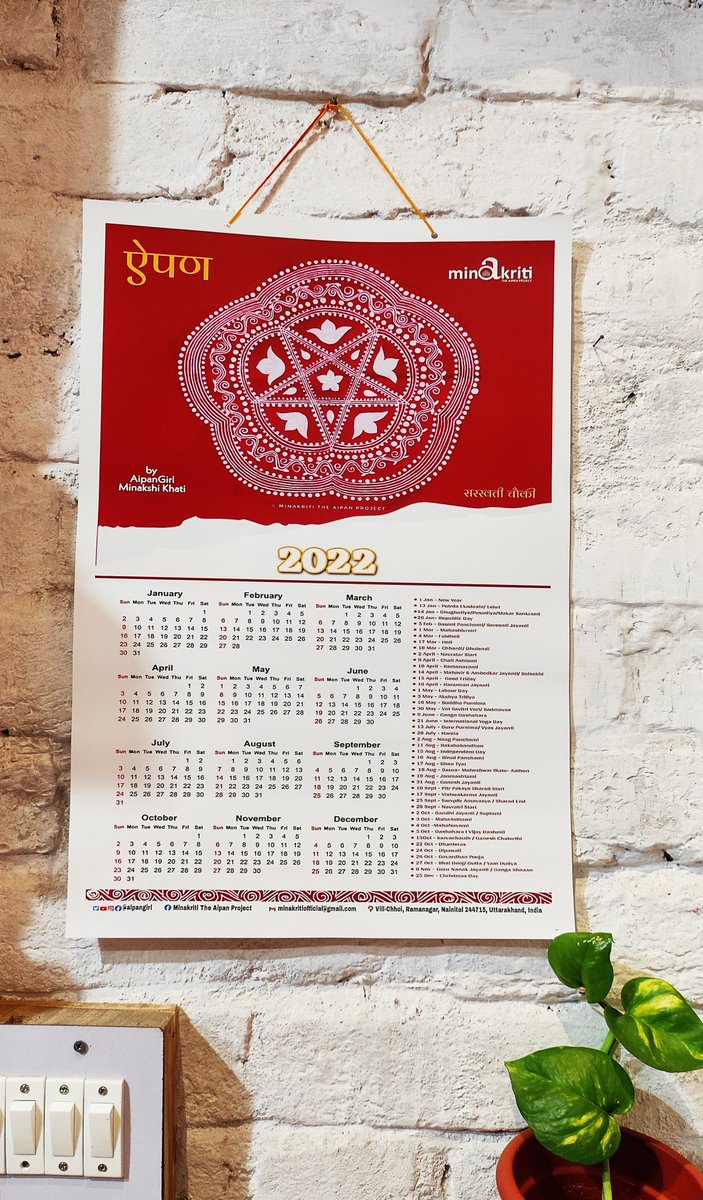 ऐपण
minakriti
THE AIPAN PROJECT
by
AipanGirl
Minakshi Khati
सरस्वती चौकी
© MINAKRITI THE AIPAN PROJECT
2022
January
Sun Mon Tue Wed Thu Fri Sat
1
2 3 4 5 6 7 8
9 10 11 12 13 14 15
16 17 18 19 20 21 22
23 24 25 26 27 28 29
30 31
February
Sun Mon Tue Wed Thu Fri Sat
1 2 3 4 5
6 7 8 9 10 11 12
13 14 15 16 17 18 19
20 21 22 23 24 25 26
27 28
March
Sun Mon Tue Wed Thu Fri Sat
1 2 3 4 5
6 7 8 9 10 11 12
13 14 15 16 17 18 19
20 21 22 23 24 25 26
27 28 29 30 31
April
Sun Mon Tue Wed Thu Fri Sat
1 2
3 4 5 6 7 8 9
10 11 12 13 14 15 16
17 18 19 20 21 22 23
24 25 26 27 28 29 30
May
Sun Mon Tue Wed Thu Fri Sat
1 2 3 4 5 6 7
8 9 10 11 12 13 14
15 16 17 18 19 20 21
22 23 24 25 26 27 28
29 30 31
June
Sun Mon Tue Wed Thu Fri Sat
1 2 3 4
5 6 7 8 9 10 11
12 13 14 15 16 17 18
19 20 21 22 23 24 25
26 27 28 29 30
July
Sun Mon Tue Wed Thu Fri Sat
1 2
3 4 5 6 7 8 9
10 11 12 13 14 15 16
17 18 19 20 21 22 23
24 25 26 27 28 29 30
31
August
Sun Mon Tue Wed Thu Fri Sat
1 2 3 4 5 6
7 8 9 10 11 12 13
14 15 16 17 18 19 20
21 22 23 24 25 26 27
28 29 30 31
September
Sun Mon Tue Wed Thu Fri Sat
1 2 3
4 5 6 7 8 9 10
11 12 13 14 15 16 17
18 19 20 21 22 23 24
25 26 27 28 29 30
October
Sun Mon Tue Wed Thu Fri Sat
1
2 3 4 5 6 7 8
9 10 11 12 13 14 15
16 17 18 19 20 21 22
23 24 25 26 27 28 29
30 31
November
Sun Mon Tue Wed Thu Fri Sat
1 2 3 4 5
6 7 8 9 10 11 12
13 14 15 16 17 18 19
20 21 22 23 24 25 26
27 28 29 30
December
Sun Mon Tue Wed Thu Fri Sat
1 2 3
4 5 6 7 8 9 10
11 12 13 14 15 16 17
18 19 20 21 22 23 24
25 26 27 28 29 30 31
1 Jan - New Year
13 Jan - Putrda Ekadashi/ Lohri
14 Jan - Ghughutiya/Pusudiya/Makar Sankranti
26 Jan- Republic Day
5 Feb - Basant Panchami/ Sarswati Jayanti
1 Mar - Mahashivratri
4 Mar - Fuldheli
17 Mar - Holi
18 Mar - Chhardi/ Dhulendi
2 April - Navratar Start
9 April - Chait Ashtami
10 April - Ramanavami
14 April - Mahavir & Ambedkar Jayanti/ Baisakhi
15 April - Good Friday
16 April - Hanuman Jayanti
1 May - Labour Day
3 May - Akshya Tritiya
16 May - Buddha Purnima
30 May - Vat Savitri Vart/ Badmavas
9 June - Ganga Dashahara
21 June - International Yoga Day
13 July - Guru Purnima/ Vyas Jayanti
28 July - Harela
2 Aug - Naag Panchami
11 Aug - Rakshabandhan
15 Aug - Independent Day
16 Aug - Birud Panchami
17 Aug - Ghee Tyar
18 Aug - Gawra- Maheshwar Sato- Aathon
19 Aug - Janmashtami
31 Aug - Ganesh Jayanti
10 Sept - Pitr Paksya Sharad Start
17 Sept - Vishwakarma Jayanti
25 Sept - Sarvpitr Amavasya / Sharad End
26 Sept - Navratri Start
2 Oct - Gandhi Jayanti / Saptami
3 Oct - MahaAsthami
4 Oct - MahaNavami
5 Oct - Dashahara ( Vijay Dashmi)
13Oct - Karvachauth / Ganesh Chaturthi
22 Oct - Dhanteras
24 Oct - Dipawali
26 Oct - Govardhan Pooja
27 Oct - Bhai Dooj/ Dutia / Yam Dutiya
8 Nov - Guru Nanak Jayanti / Ganga Snaaan
25 Dec - Christmas Day
@aipangirl
Minakriti The Aipan Project
minakritiofficial@gmail.com
Vill-Chhoi, Ramanagar, Nainital 244715, Uttarakhand, India